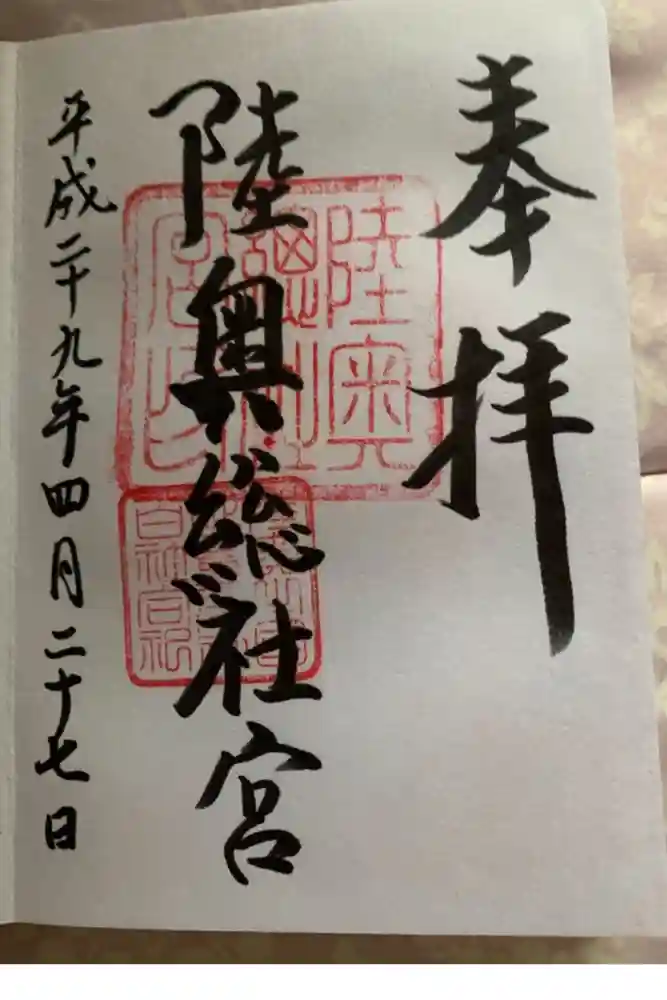 奉拝
陸奥総社宮
平成二十九年四月二十七日
陸奥
總社
宮印